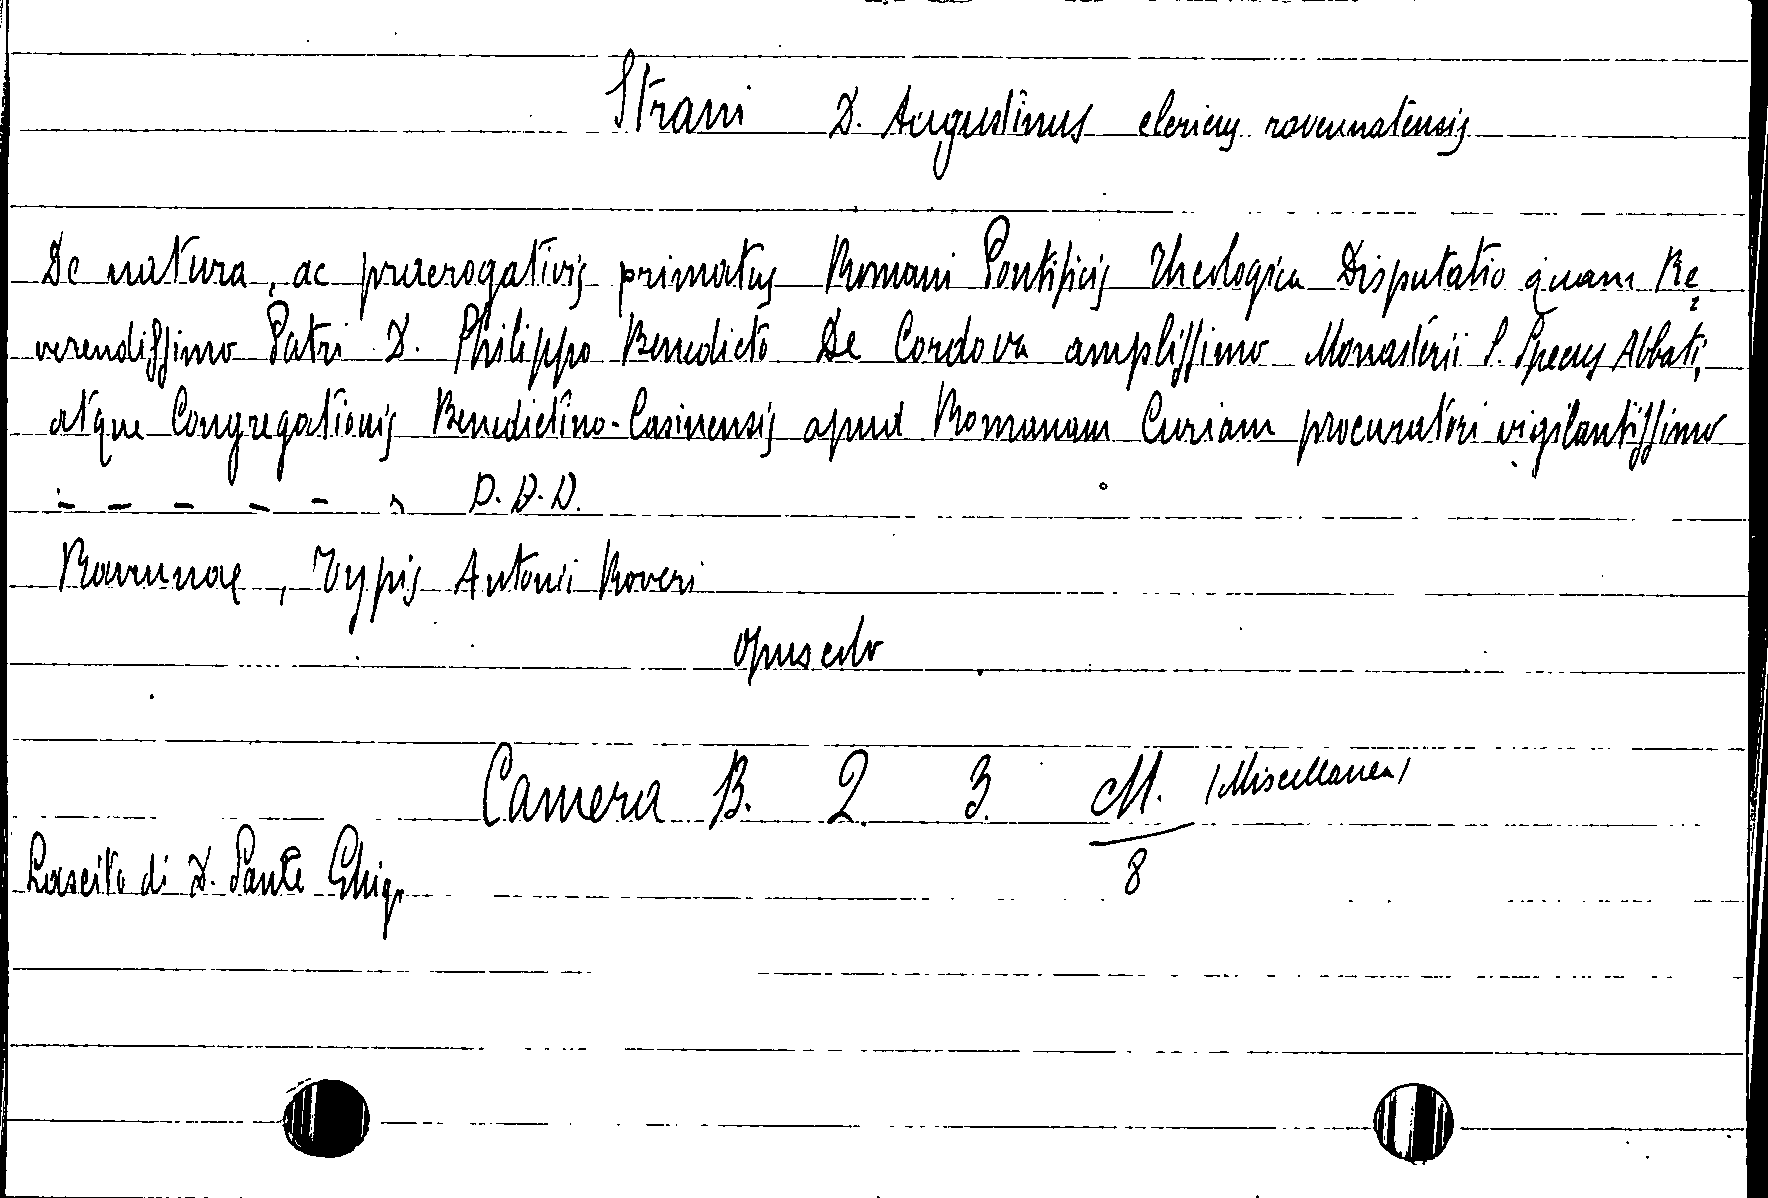 Strani D. Augustinus clericus ravennatensis
De natura, ac praerogativis primatus Romani Pontificis Theologica Disputatio quam Re
verendissimo Patri D. Philippo Benedicto De Cordova amplissimo Monasterii S. Specus Abbati,
atque Congregationis Benedictino-Casinensis apud Romanam Curiam procuratori vigilantissimo
- - - - - - D.D.D.
Ravennae, Typis Antonii Roveri
opuscolo
Camera B. 2. 3. M. (Miscellanea)
8
Lascito di D. Sante Ghig.